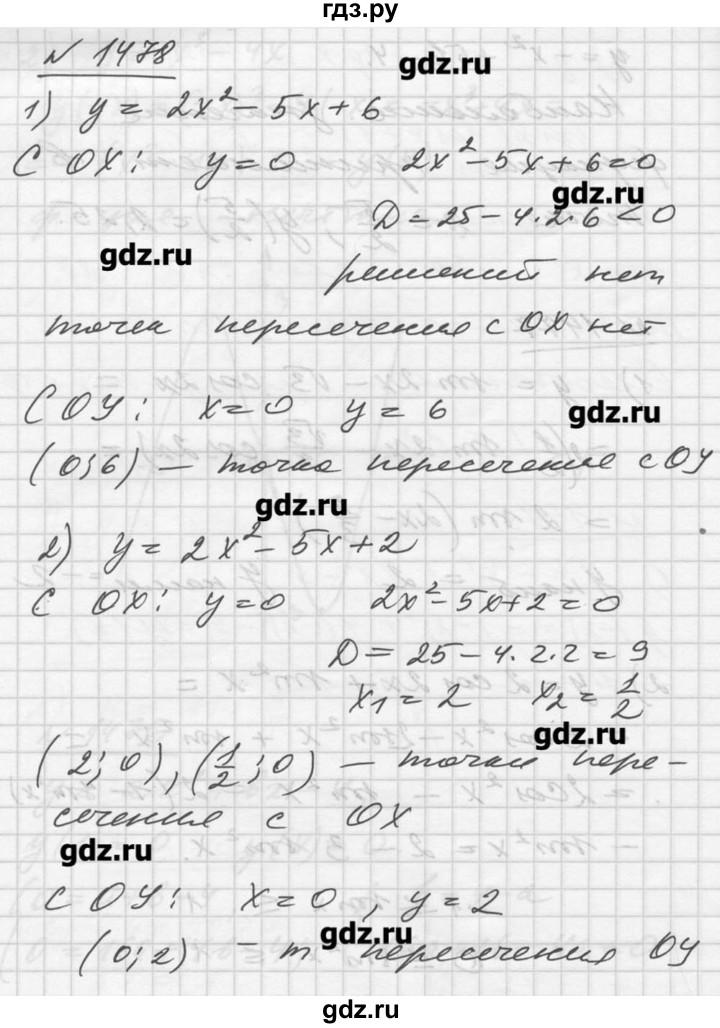 гдз.ру
№ 1478
gdz.ru
1) y = 2x² - 5x + 6
С OX: y = 0 2x² - 5x + 6 = 0
gdz.ru
D = 25 - 4·2·6 < 0
gdz.ru
решений нет
точек пересечения с OX нет
С OY: x = 0 y = 6
gdz.ru
(0; 6) — точка пересечения с OY
gdz.ru
2) y = 2x² - 5x + 2
С OX: y = 0 2x² - 5x + 2 = 0
D = 25 - 4·2·2 = 9
x₁ = 2 x₂ = 1/2
gdz.ru
(2; 0), (1/2; 0) — точки пере-
сечения с OX
gdz.ru
С OY: x = 0, y = 2
gdz.ru
(0; 2) - т пересечения OY
gdz.ru